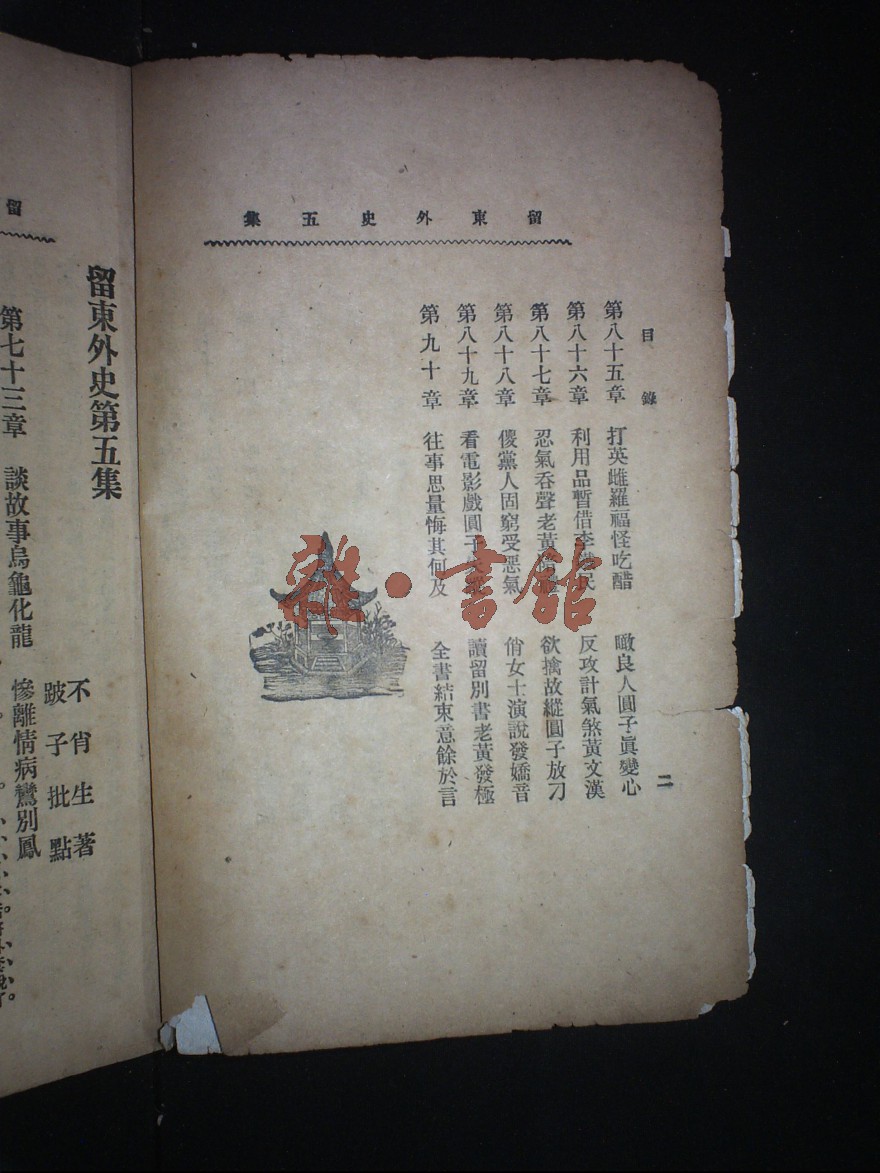 留東外史五集
目錄
二
第八十五章 打英雌羅福怪吃醋 瞰良人圓子眞變心
第八十六章 利用品暫借李 民 反攻計氣煞黃文漢
第八十七章 忍氣吞聲老黃 欲擒故縱圓子放刁
第八十八章 傻黨人固窮受惡氣 俏女士演說發嬌音
第八十九章 看電影戲圓子 讀留別書老黃發極
第九十章 往事思量悔其何及 全書結束意餘於言
雜·書館
留
留東外史第五集
不肖生著
跛子批點
第七十三章 談故事烏龜化龍 慘離情病鸞別鳳